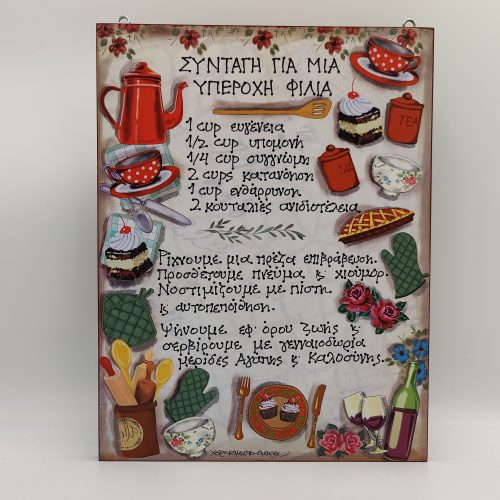 ΣΥΝΤΑΓΗ ΓΙΑ ΜΙΑ
ΥΠΕΡΟΧΗ ΦΙΛΙΑ
1 cup ευγένεια
1/2 cup υπομονή
1/4 cup συγγνώμη
2 cups κατανόηση
1 cup ενθάρρυνση
2 κουταλιές ανιδιοτέλεια
Ρίχνουμε μια πρέζα επιβράβευση.
Προσθέτουμε πνεύμα & χιούμορ.
Νοστιμίζουμε με πίστη
& αυτοπεποίθηση.
Ψήνουμε εφ' όρου ζωής &
σερβίρουμε με γενναιοδωρία
μερίδες Αγάπης & Καλοσύνης.
TEA
SU